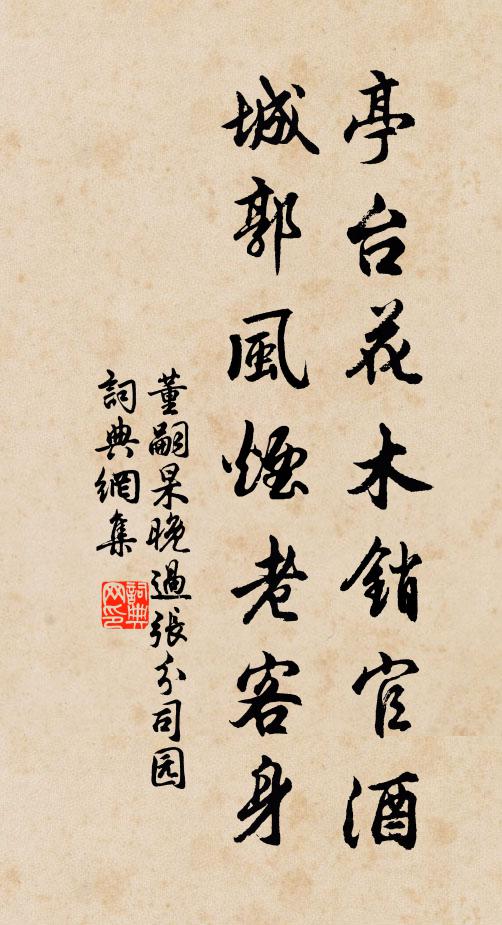 亭台花木銷官酒
城郭風煙老客身
董嗣杲晚過張分司园
詞典網集
詞典网印